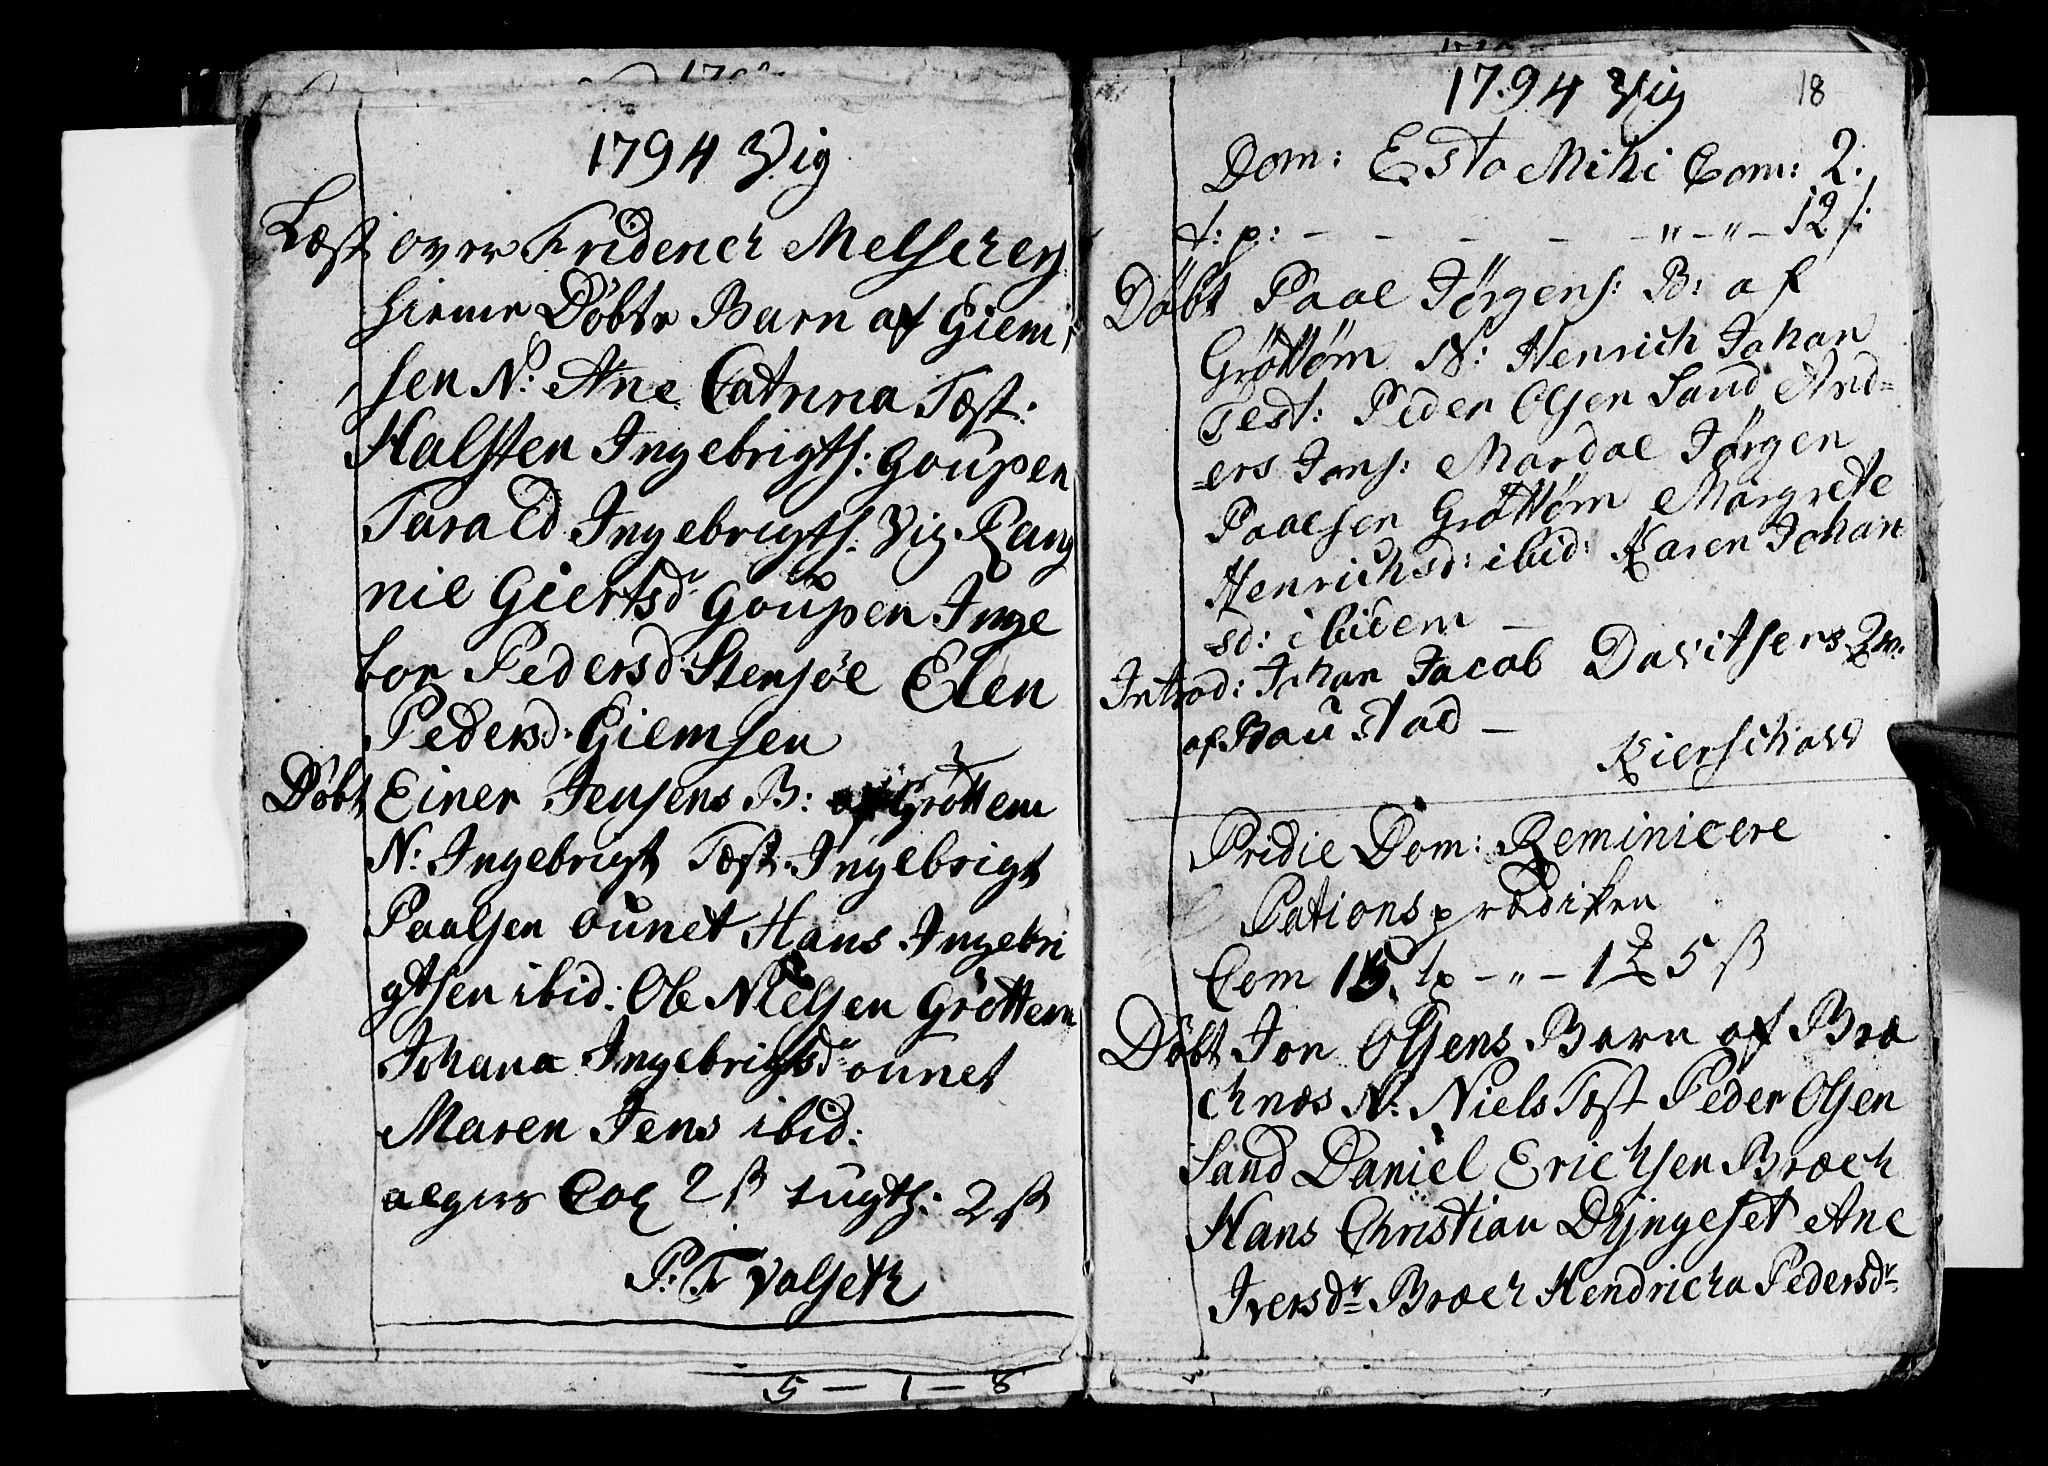 1794 Vig
Læst over Friderich Melscheg
hieme Døbte Barn af Giem
sen N: Ane Catrina Tæst:
Halsten Ingebrigts: Goupen
Tarald Ingebrigts: Vig Rang
nil Giertsdr Goupen Inge
bor Pedersd: Stensøe Elen
Pedersd: Giemsen
Døbt Einer Jensens B: af Grøttem
N: Ingebrigt Tæst: Ingebrigt
Paalsen ounet Hans Ingebri
gtsen ibid: Ole Nielsen Grøttem
Johana Ingebrigtsdr ounet
Maren Jens ibid:
2 ß tugth: 2 ß
P: T Valseth
5 – 1 – 8
1794 Vig 18
Dom: Esto Mihi Com: 2.
t: p: – – – – – „ – „ – 12 ſ:
Døbt Paal Jørgens: B: af
Grøttøm N: Henrich Johan
Test: Peder Olsen Sand And=
=ers Jons: Mardal Jørgen
Paalsen Grøttøm Margrete
Henrichsd: ibid: Karen Johan
sd: ibidem –
Introd: Johan Jacob Davitsens
af Baustad –
Kierschow
Pridie Dom: Reminicere
Pationsprædiken
Com 15. – „ – 1 5 ß
Døbt Jon Olsens Barn af Bræ
chnæs N: Niels Tæst Peder Olsen
Sand Daniel Erichsen Bræch
Hans Christian Dyngeset Ane
Iversdr Bræch Hendricha Pedersdr